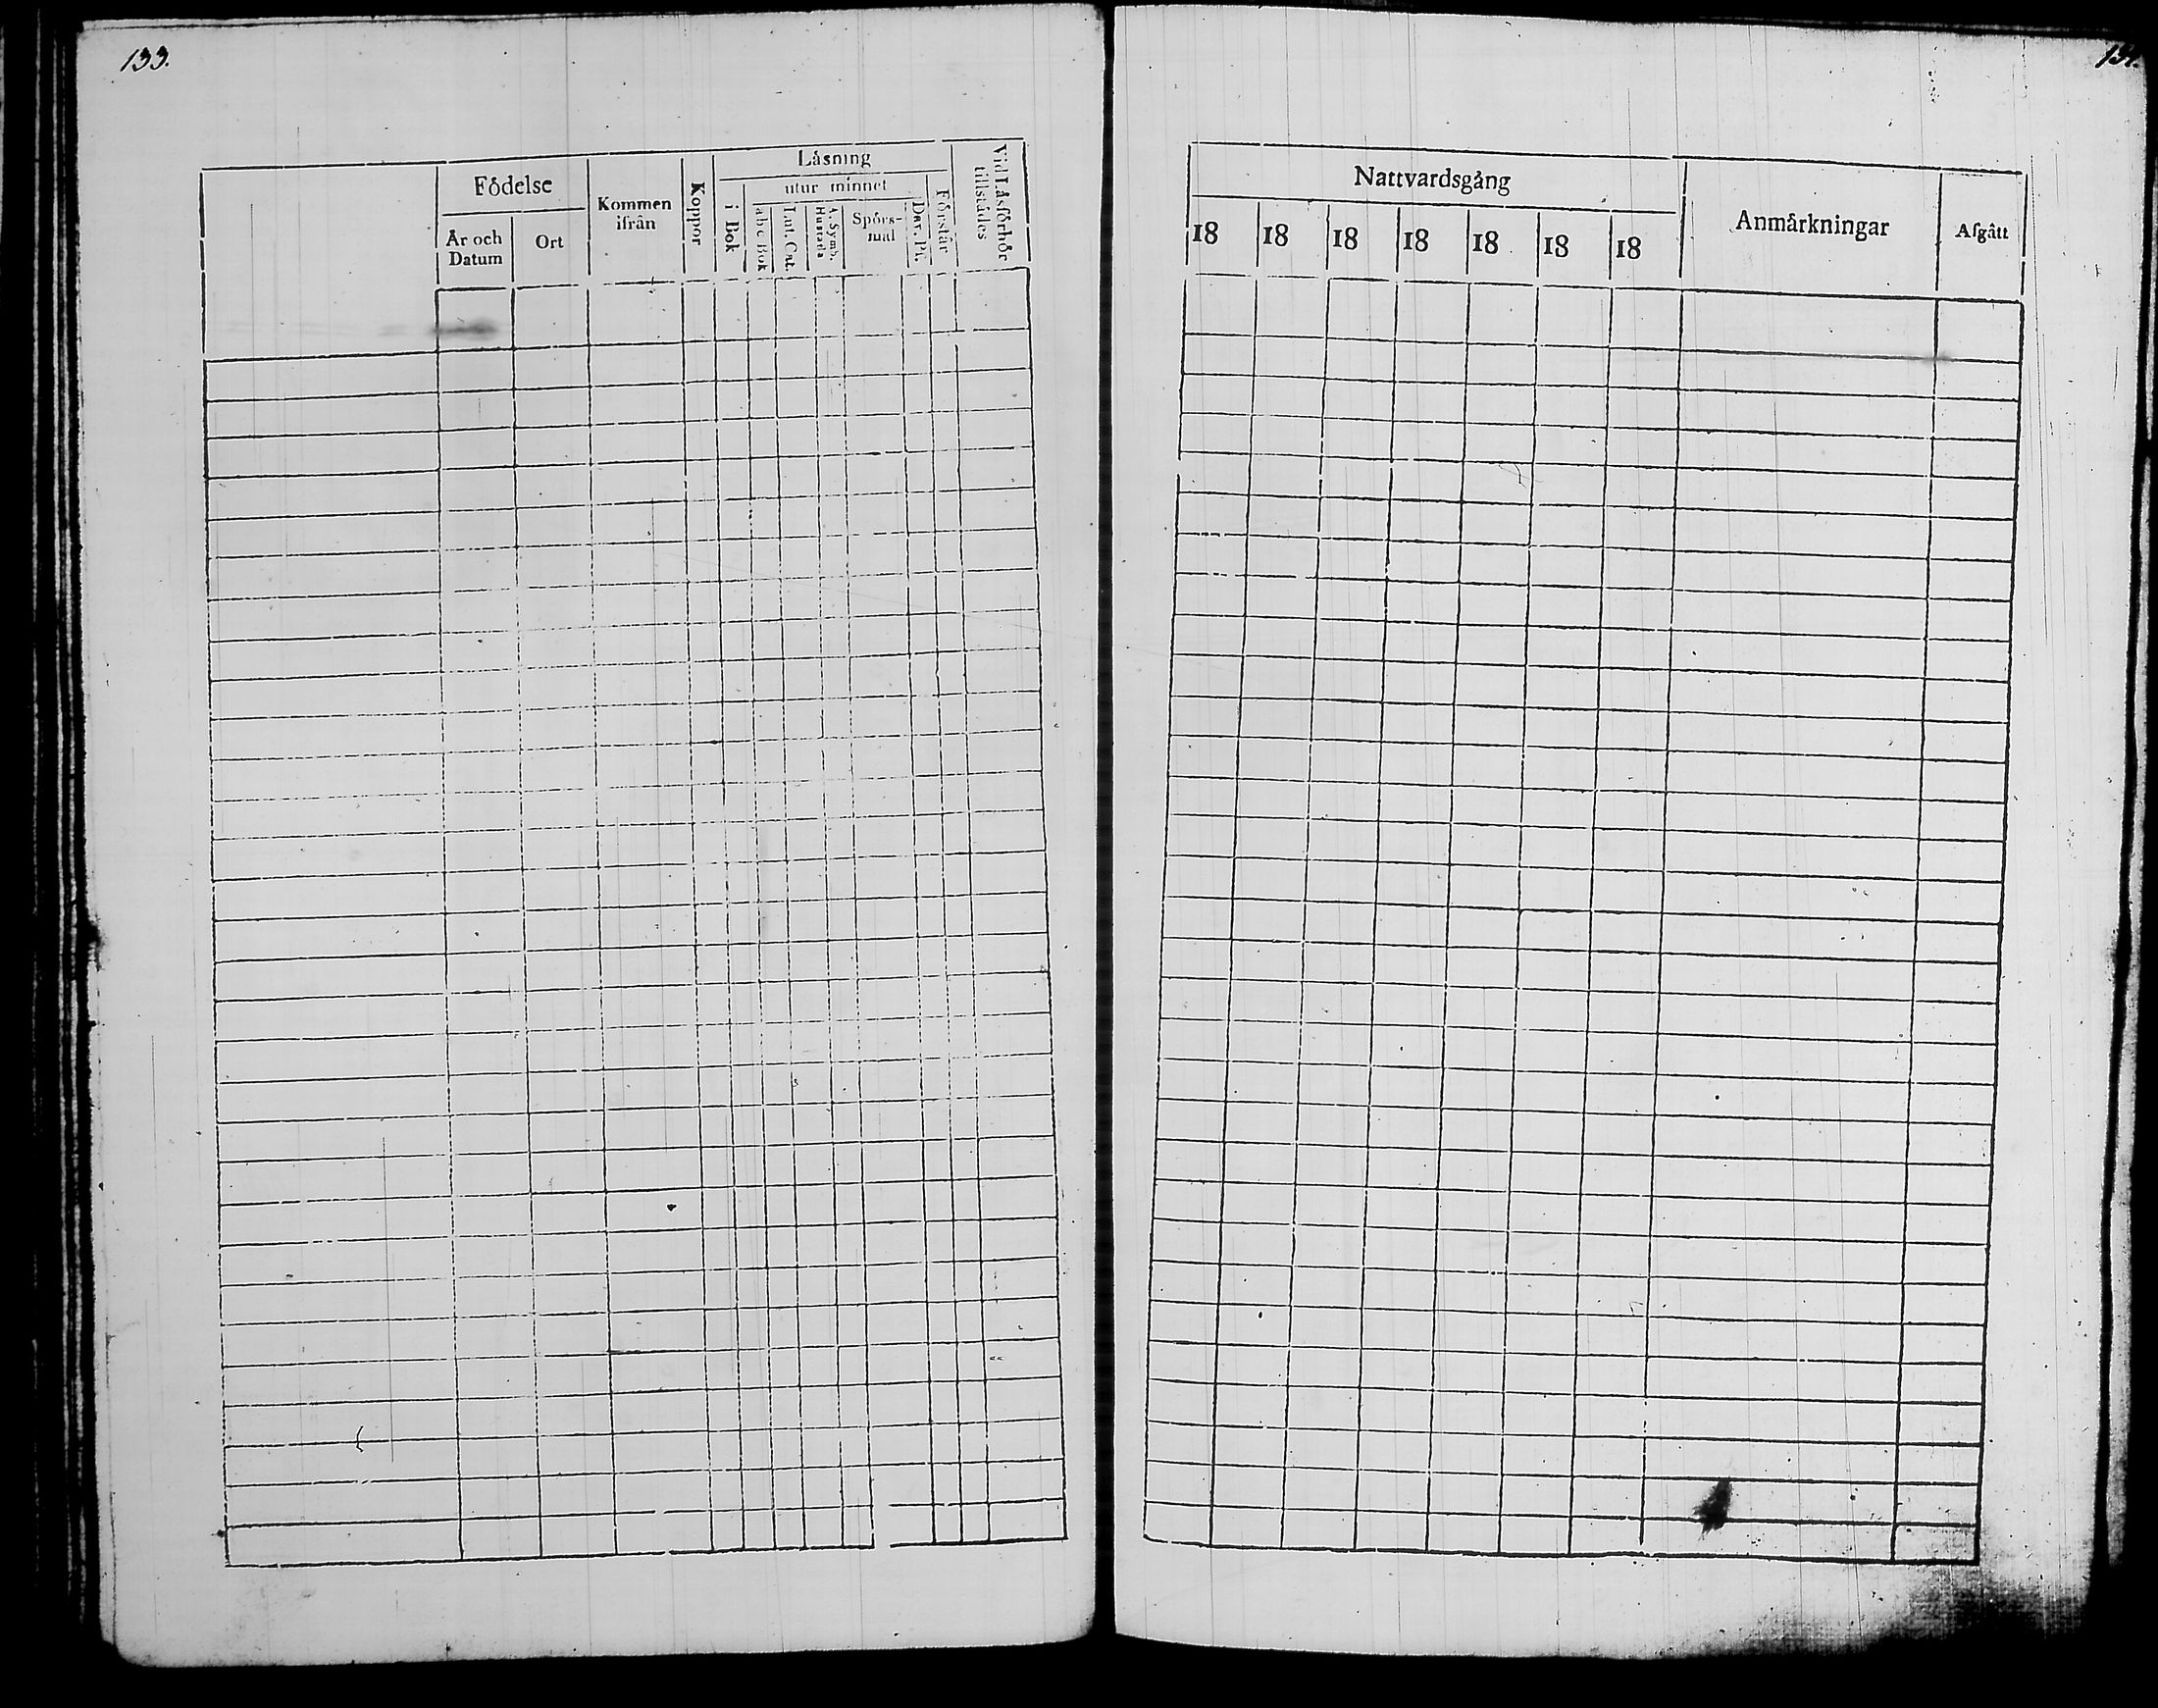 133.
Födelse
År och Datum
Ort
Kommen ifrån
Koppor
Läsning
i Bok
utur minnet
abc Bok
Lut. Cat.
A. Symb. Hustafla
Spörs-mål
Dav. Ps.
Förstår
Vid Läsförhör tillstädes
Nattvardsgång
18 18 18 18 18 18 18
Anmärkningar
Afgått